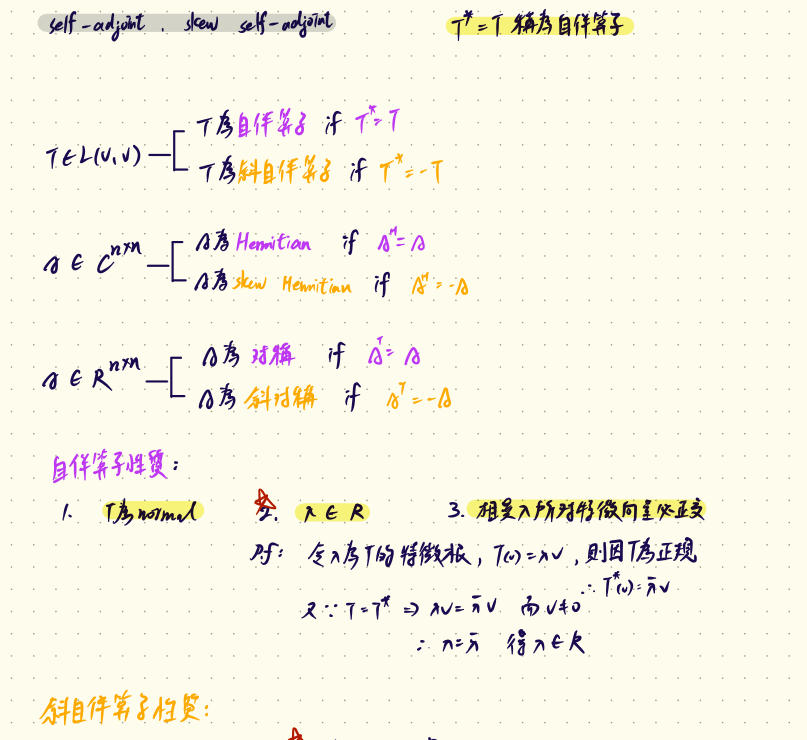 self-adjoint . skew self-adjoint
T* = T 稱為自伴算子
T為自伴算子 if T* = T
T ∈ L(V,V)
T為斜自伴算子 if T* = -T
A為Hermitian if Aᴴ = A
A ∈ Cⁿˣⁿ
A為skew Hermitian if Aᴴ = -A
A為 对稱 if Aᵀ = A
A ∈ Rⁿˣⁿ
A為 斜对稱 if Aᵀ = -A
自伴算子性質：
1. T為normal 2. λ ∈ R 3. 相異λ所对特徵向量必正交
Pf： 令λ為T的特徵根，T(v) = λv，則因T為正規
∴ T*(v) = λ̄v
又∵ T = T* ⇒ λv = λ̄v 而 v ≠ 0
∴ λ = λ̄ 得 λ ∈ R
斜自伴算子性質：